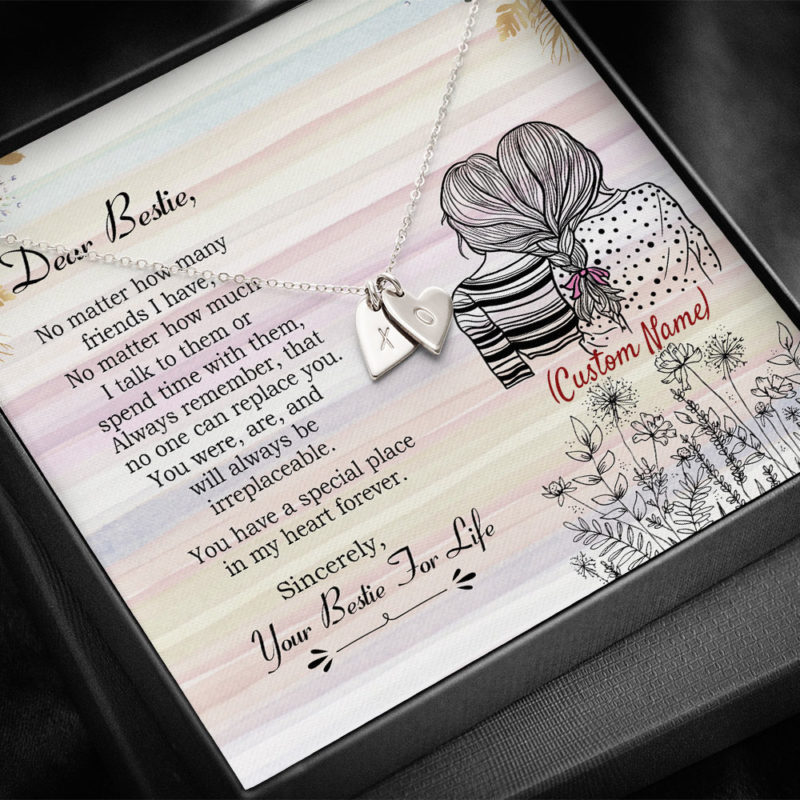 Dear Bestie,
No matter how many
friends I have,
No matter how much
I talk to them or
spend time with them,
Always remember, that
no one can replace you.
You were, are, and
will always be
irreplaceable.
You have a special place
in my heart forever.
Sincerely,
Your Bestie For Life
X
O
(Custom Name)